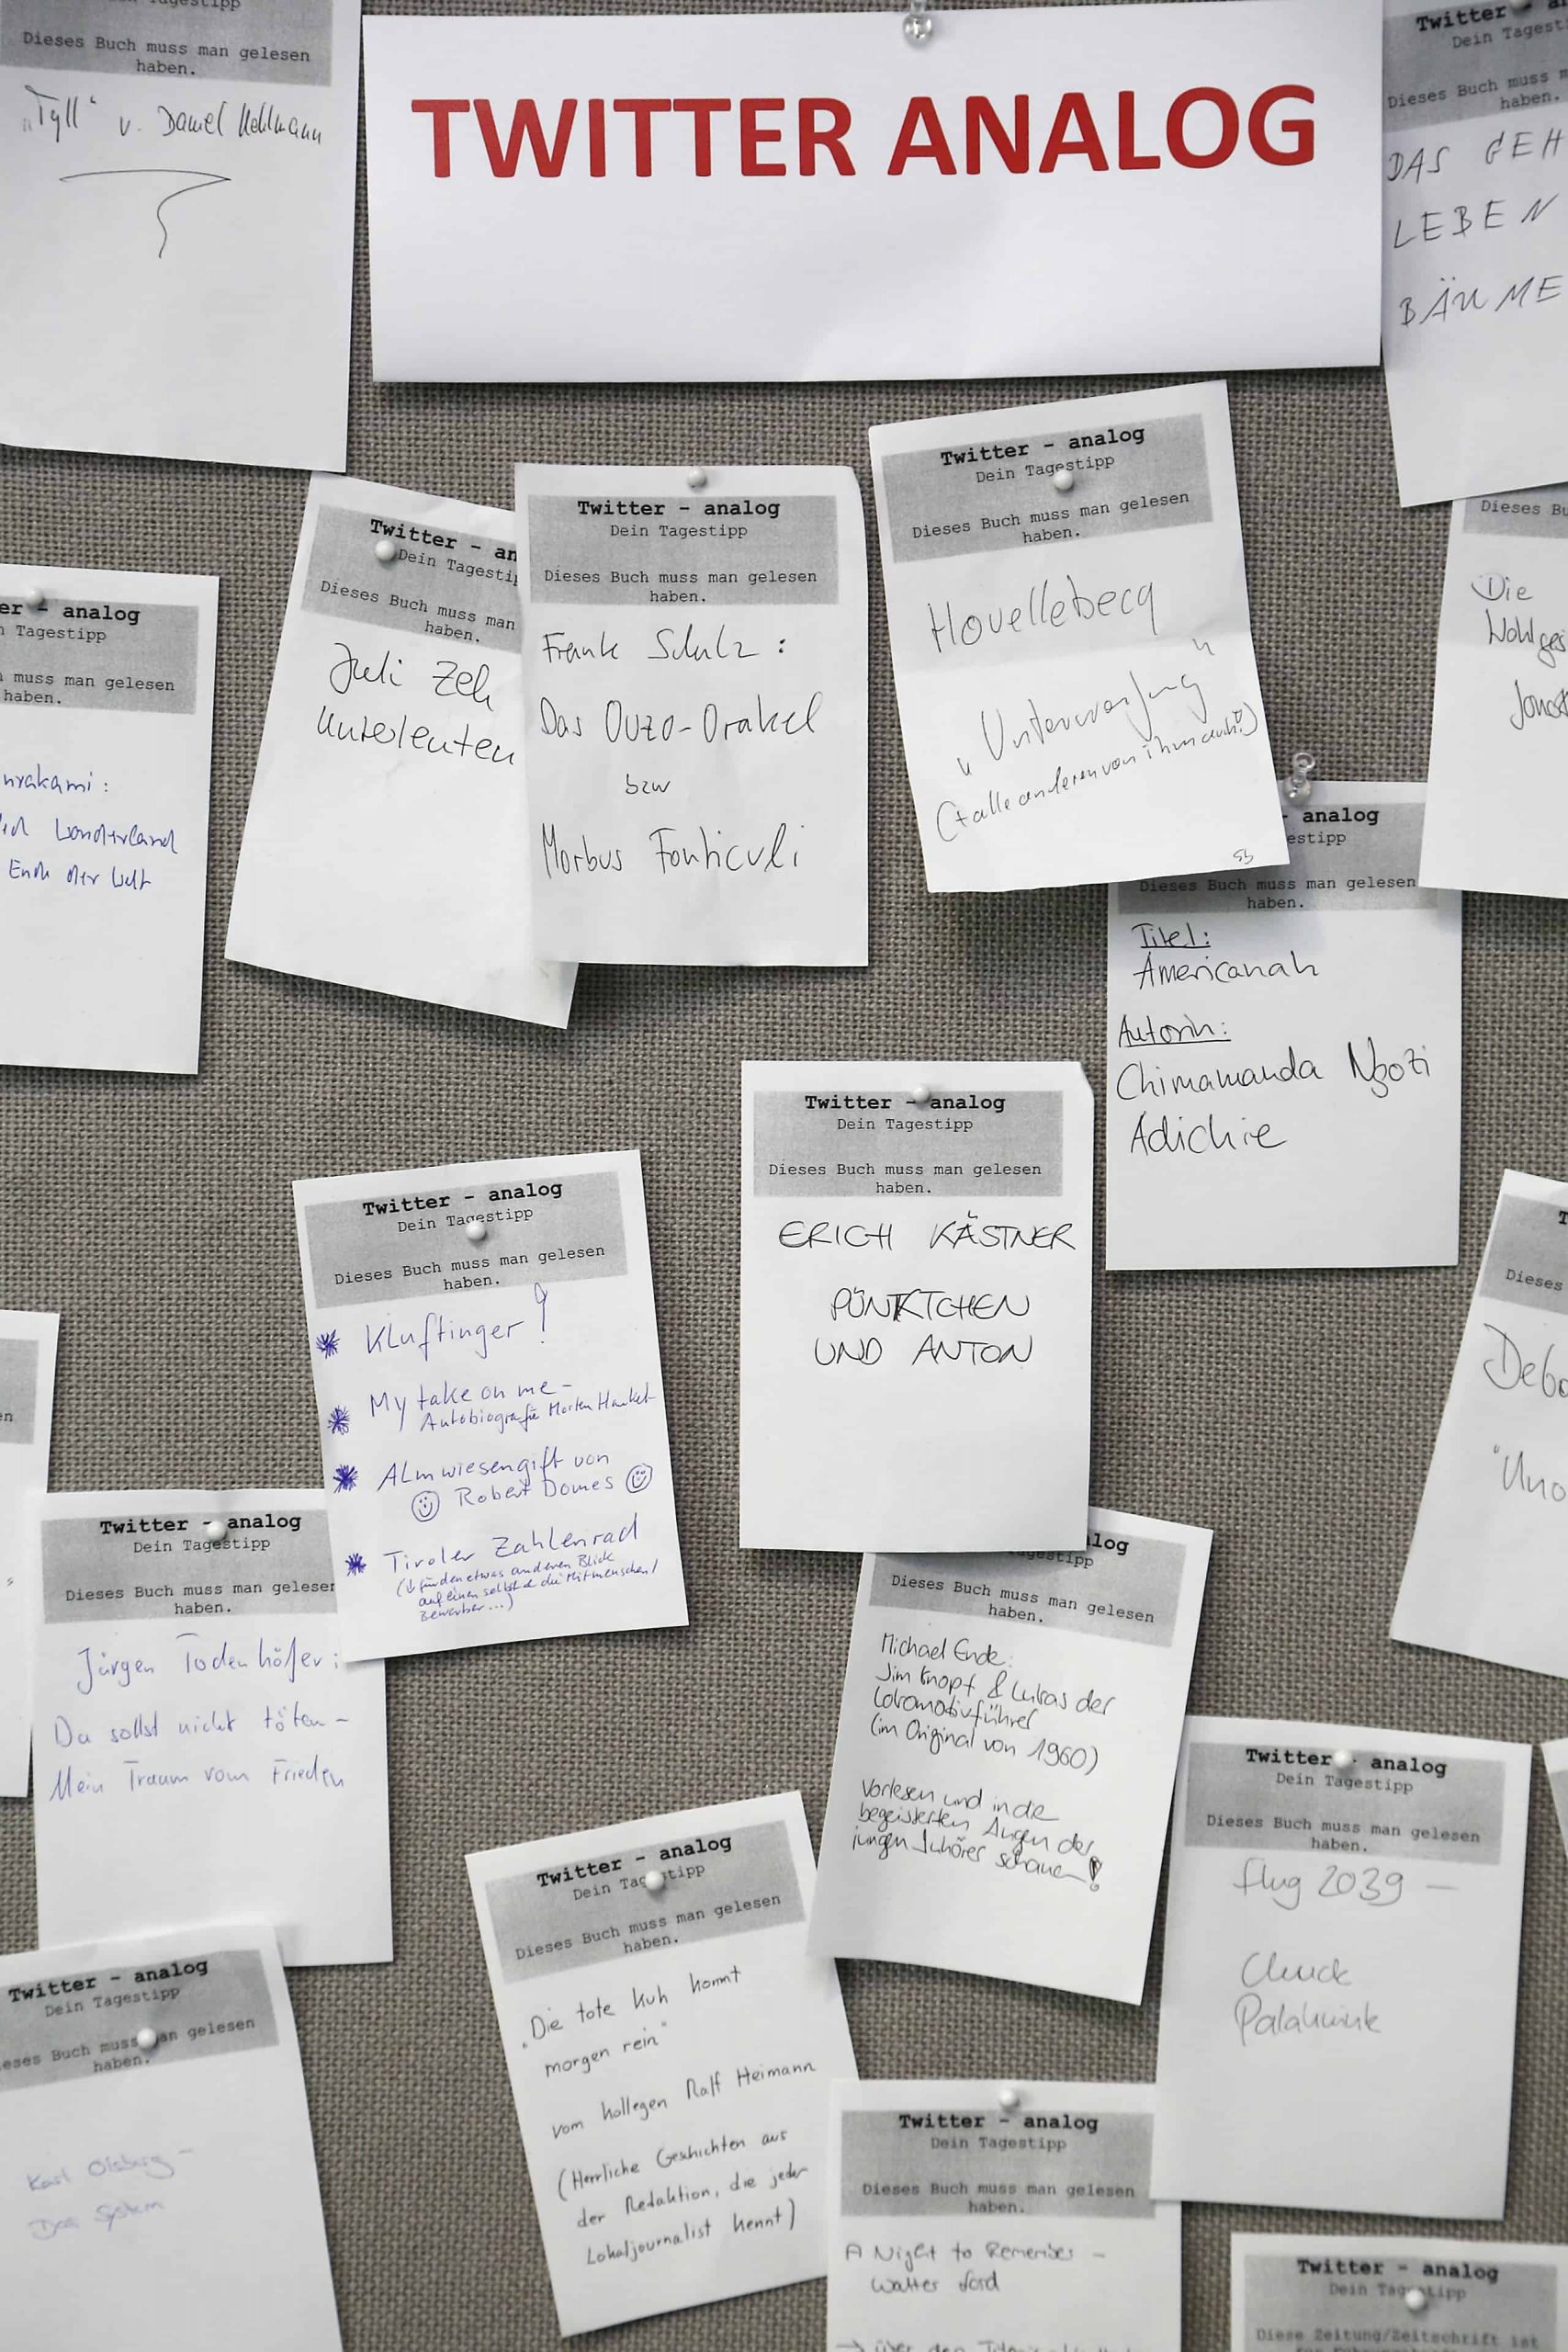 Tagestipp
Dieses Buch muss man gelesen
haben.
"Tyll" v. Daniel Kehlmann
TWITTER ANALOG
Twitter
Dein Tagest
Dieses Buch muss m
haben.
DAS GEH
LEBEN
BÄUME
er - analog
n Tagestipp
muss man gelesen
haben.
urakami:
Wonderland
Ende der Welt
Twitter - an
Dein Tagesti
Dieses Buch muss man
haben.
Juli Zeh
Unterleuten
Twitter - analog
Dein Tagestipp
Dieses Buch muss man gelesen
haben.
Frank Schulz:
Das Ouzo-Orakel
bzw
Morbus Fonticuli
Twitter - analog
Dein Tagestipp
Dieses Buch muss man gelesen
haben.
Houellebecq
"Unterwerfung"
(+ alle anderen von ihm auch!)
Dieses Bu
Die
Wohlges
Jonat
- analog
estipp
Dieses Buch muss man gelesen
haben.
Titel:
Americanah
Autorin:
Chimamanda Ngozi
Adichie
Twitter - analog
Dein Tagestipp
Dieses Buch muss man gelesen
haben.
ERICH KÄSTNER
PÜNKTCHEN
UND ANTON
Twitter - analog
Dein Tagestipp
Dieses Buch muss man gelesen
haben.
* Kluftinger!
* My take on me -
Autobiografie Morten Harket
* Almwiesengift von
☺ Robert Domes ☺
* Tiroler Zahlenrad
(↳ für den etwas anderen Blick
auf einen selbst & die Mitmenschen/
Bewerber...)
Dieses
Debo
"Uno
en
Twitter - analog
Dein Tagestipp
Dieses Buch muss man gelesen
haben.
Jürgen Todenhöfer:
Du sollst nicht töten -
Mein Traum vom Frieden
log
gestipp
Dieses Buch muss man gelesen
haben.
Michael Ende:
Jim Knopf & Lukas der
Lokomotivführer
(im Original von 1960)
Vorlesen und in die
begeisterten Augen der
jungen Zuhörer schauen!
Twitter - analog
Dein Tagestipp
Dieses Buch muss man gelesen
haben.
Flug 2039 -
Chuck
Palahniuk
Twitter - analog
Dein Tagestipp
Dieses Buch muss man gelesen
haben.
"Die tote Kuh kommt
morgen rein"
vom Kollegen Ralf Heimann
(Herrliche Geschichten aus
der Redaktion, die jeder
Lokaljournalist kennt)
Twitter - analog
Dein Tagestipp
eses Buch muss man gelesen
haben.
Karl Olsberg -
Das System
Twitter - analog
Dein Tagestipp
Dieses Buch muss man gelesen
haben.
A Night to Remember -
Walter Lord
→ über den
Twitter - analog
Dein Tagestipp
Diese Zeitung/Zeitschrift ist